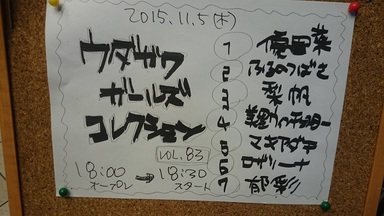 2015.11.5(木)
ウダガワ
ガールズ
コレクション
VOL.83
18:00 → 18:30
オープン スタート
1 優田菜
2 ふるのつばさ
3 梨帆
4
5 マキアダチ
6 ロザリーナ
7 郁彩